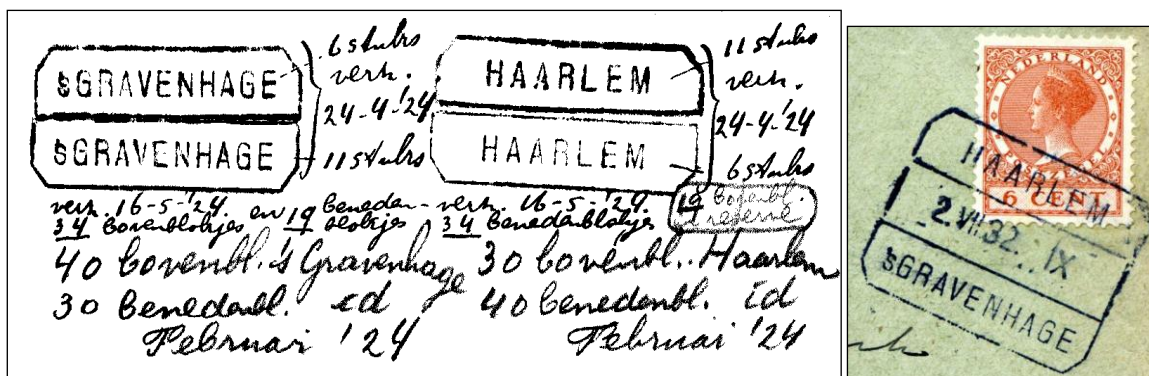 sGRAVENHAGE
sGRAVENHAGE
6 stuks
verk.
24-4-'24
11 stuks
HAARLEM
HAARLEM
11 stuks
verk.
24-4-'24
6 stuks
verk. 16-5-'24.
34 bovenblokjes en 19 beneden-
blokjes
verk. 16-5-'24.
34 benedenblokjes
19 bovenbl.
reserve.
40 bovenbl. 's Gravenhage
30 benedenbl. id
Februari '24
30 bovenbl. Haarlem
40 benedenbl. id
Februari '24
NEDERLAND
6 CENT
HAARLEM
2.VII.32. IX
sGRAVENHAGE